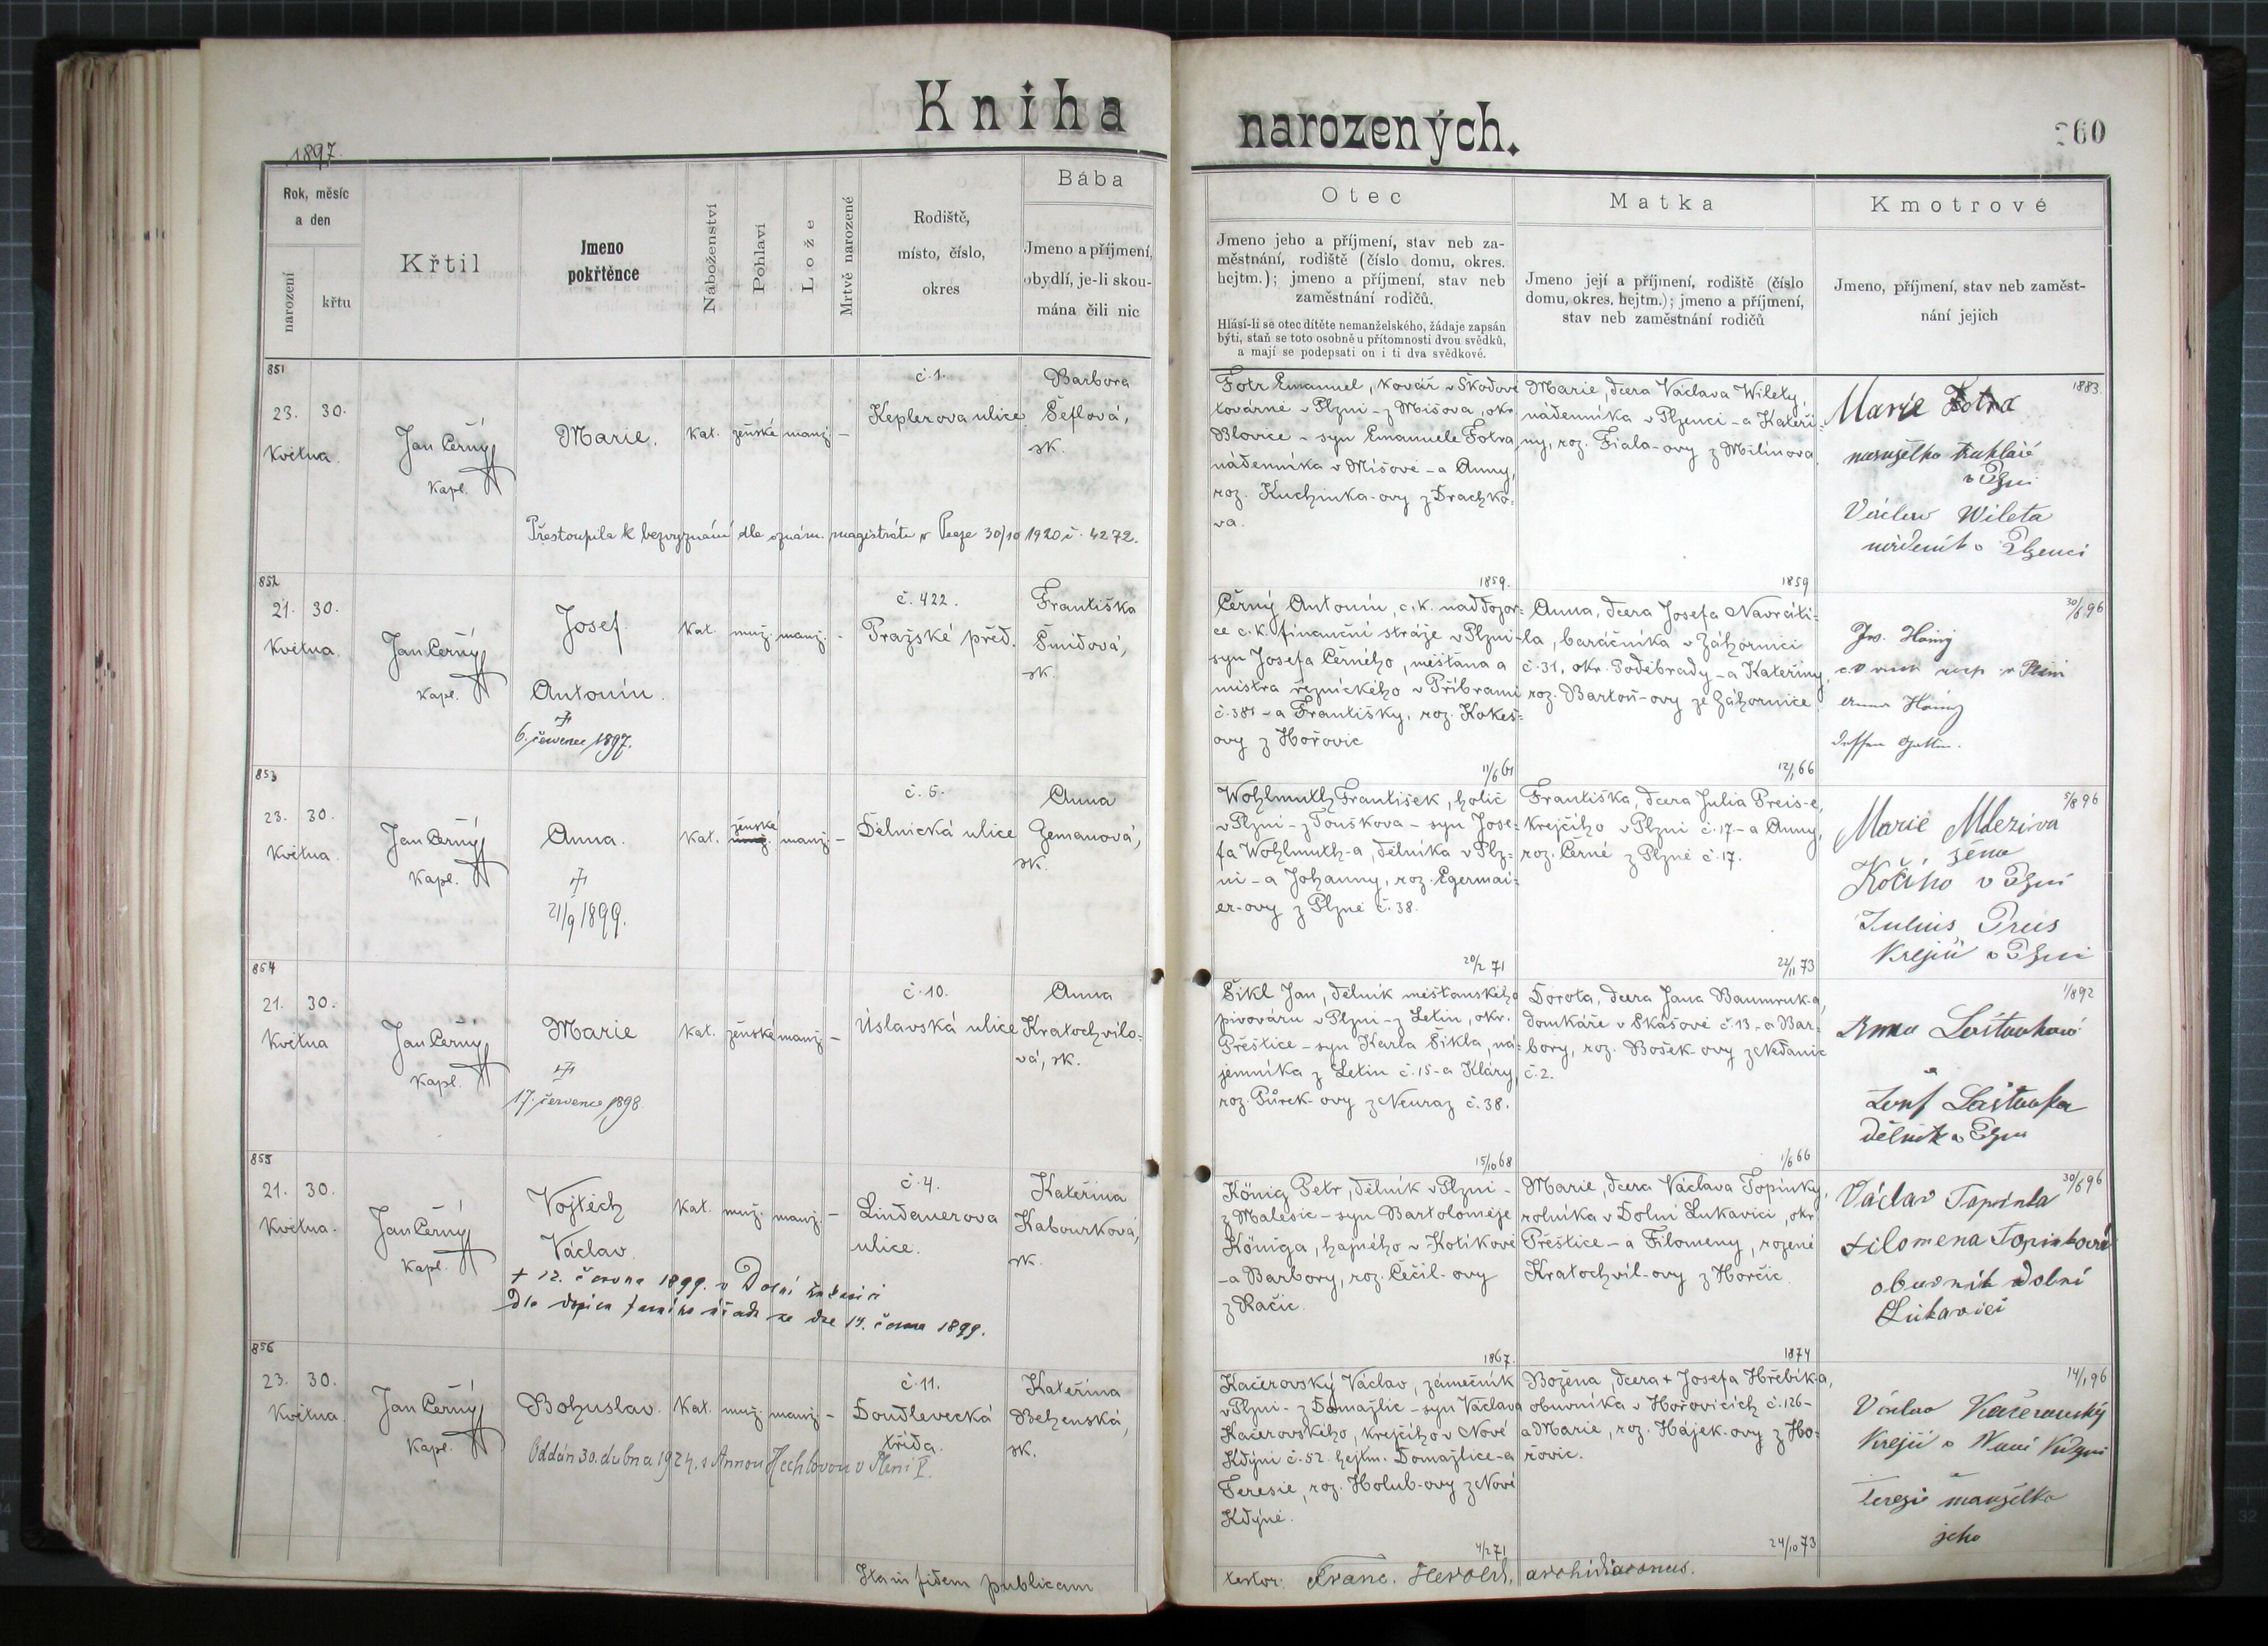 Kniha
narozených.
260
1897.
Rok, měsíc
a den
narození
křtu
Křtil
Jmeno
pokřtěnce
Náboženství
Pohlaví
Lože
Mrtvě narozené
Rodiště,
místo, číslo,
okres
Bába
Jmeno a příjmení,
obydlí, je-li skou-
mána čili nic
Otec
Jmeno jeho a příjmení, stav neb za-
městnání, rodiště (číslo domu, okres.
hejtm.); jmeno a příjmení, stav neb
zaměstnání rodičů.
Hlásí-li se otec dítěte nemanželského, žádaje zapsán
býti, staň se toto osobně u přítomnosti dvou svědků,
a mají se podepsati on i ti dva svědkové.
Matka
Jmeno její a příjmení, rodiště (číslo
domu, okres. hejtm.); jmeno a příjmení,
stav neb zaměstnání rodičů
Kmotrové
Jmeno, příjmení, stav neb zaměst-
nání jejich
851
23. 30.
Května.
Jan Černý
Kapl.
Marie.
Kat. ženské manž. –
č. 1.
Keplerova ulice
Barbora
Šeflová,
zk.
Přestoupila k bezvyznání dle oznám. magistrátu v Praze 30/10 1920 č. 4272.
Fotr Emanuel, kovář v Škodově
továrně v Plzni – z Míšova, okr.
Blovice – syn Emanuele Fotra,
nádenníka v Míšově – a Anny,
roz. Kuchinka-ovy z Drachko=
va.
1859.
Marie, dcera Václava Wilety,
nádenníka v Plzenci – a Kateři=
ny, roz. Fiala-ovy z Milínova.
1859
1883.
Marie Fotra
manželka truhláře
v Plzni
Václav Wileta
nádeník v Plzenci
852
21. 30.
Května.
Jan Černý
Kapl.
Josef
Antonín.
6. červenec 1897.
Kat. muž. manž. –
č. 422.
Pražské před.
Františka
Šmídová,
zk.
Černý Antonín, c. k. naddozor=
ce c. k. finanční stráže v Plzni –
syn Josefa Černého, měšťana a
mistra řeznického v Příbrami
č. 381 – a Františky, roz. Kokeš=
ovy z Hořovic
11/6 61
Anna, dcera Josefa Navráti=
la, baráčníka v Záhornici
č. 31, okr. Poděbrady – a Kateřiny,
roz. Bartoň-ovy ze Záhornice
12/1 66
30/6 96
853
23. 30.
Května.
Jan Černý
Kapl.
Anna.
21/9 1899.
Kat. ženské manž. –
č. 5.
Dělnická ulice
Anna
Zemanová,
zk.
Wohlmuth František, holič
v Plzni – z Touškova – syn Jose=
fa Wohlmuth-a, dělníka v Plz=
ni – a Johanny, roz. Egermai=
er-ovy z Plzně č. 38.
20/2 71
Františka, dcera Julia Preis-e,
krejčího v Plzni č. 17 – a Anny,
roz. Černé z Plzně č. 17.
22/11 73
5/8 96
Marie Mleziva
žena
Kočího v Plzni
Julius Preis
Krejčí v Plzni
854
21. 30.
Května
Jan Černý
Kapl.
Marie
17. července 1898.
Kat. ženské manž. –
č. 10.
Úslavská ulice
Anna
Kratochvilo=
vá, zk.
Šikl Jan, dělník měšťanského
pivováru v Plzni – z Letin, okr.
Přeštice – syn Karla Šikla, ná=
jemníka z Letin č. 15 – a Kláry,
roz. Půrek-ovy z Neuraz č. 38.
15/10 68
Dorota, dcera Jana Baumruk-a,
domkáře v Skášově č. 13 – a Bar=
bory, roz. Bošek-ovy z Nedanic
č. 2.
1/6 66
1/8 92
Anna Laštovková
Josef Laštovka
dělník v Plzni
855
21. 30.
Května.
Jan Černý
Kapl.
Vojtěch
Václav.
Kat. muž. manž. –
č. 4.
Lindauerova
ulice.
Kateřina
Kabourková,
zk.
+ 12. června 1899. v Dolní Lukavici
Dle dopisu farního úřadu ze dne 14. června 1899.
König Petr, dělník v Plzni –
z Malesic – syn Bartoloměje
Königa, hajného v Kotíkově
– a Barbory, roz. Cečil-ovy
z Račic.
1867.
Marie, dcera Václava Topinky,
rolníka v Dolní Lukavici, okr.
Přeštice – a Filomeny, rozené
Kratochvil-ovy z Horčic.
1874
30/6 96
Václav Topinka
Filomena Topinková
obuvník Dolní
Lukavici
856
23. 30.
Května.
Jan Černý
Kapl.
Bohuslav.
Kat. muž. manž. –
č. 11.
Doudlevecká
třída.
Kateřina
Behenská,
zk.
Oddán 30. dubna 1924. s Annou Hechlovou v Plzni V.
Kačerovský Václav, zámečník
v Plzni – z Domažlic – syn Václava
Kačerovského, krejčího v Nové
Kdýni č. 52. hejtm. Domažlice – a
Teresie, roz. Holub-ovy z Nové
Kdýně.
4/2 71
Božena, dcera + Josefa Hřebík-a,
obuvníka v Hořovicích č. 126 –
a Marie, roz. Hájek-ovy z Ho=
řovic.
24/10 73
14/1 96
Václav Kačerovský
Krejčí v Nové Kdyni
Terezie manželka
jeho
Ita in fidem publicam
testor: Franc. Herold, archidiaconus.